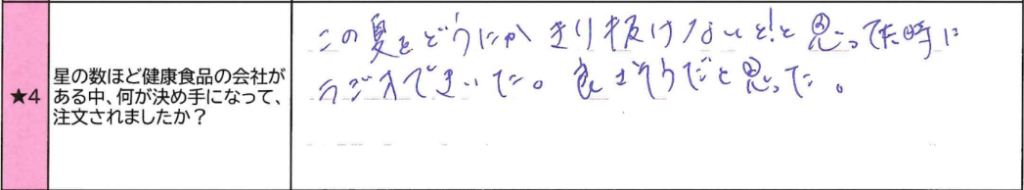 ★4
星の数ほど健康食品の会社が
ある中、何が決め手になって、
注文されましたか？
この夏をどうにか きり抜けないと!と思ってた時に
ラジオできいた。良さそうだと思った。